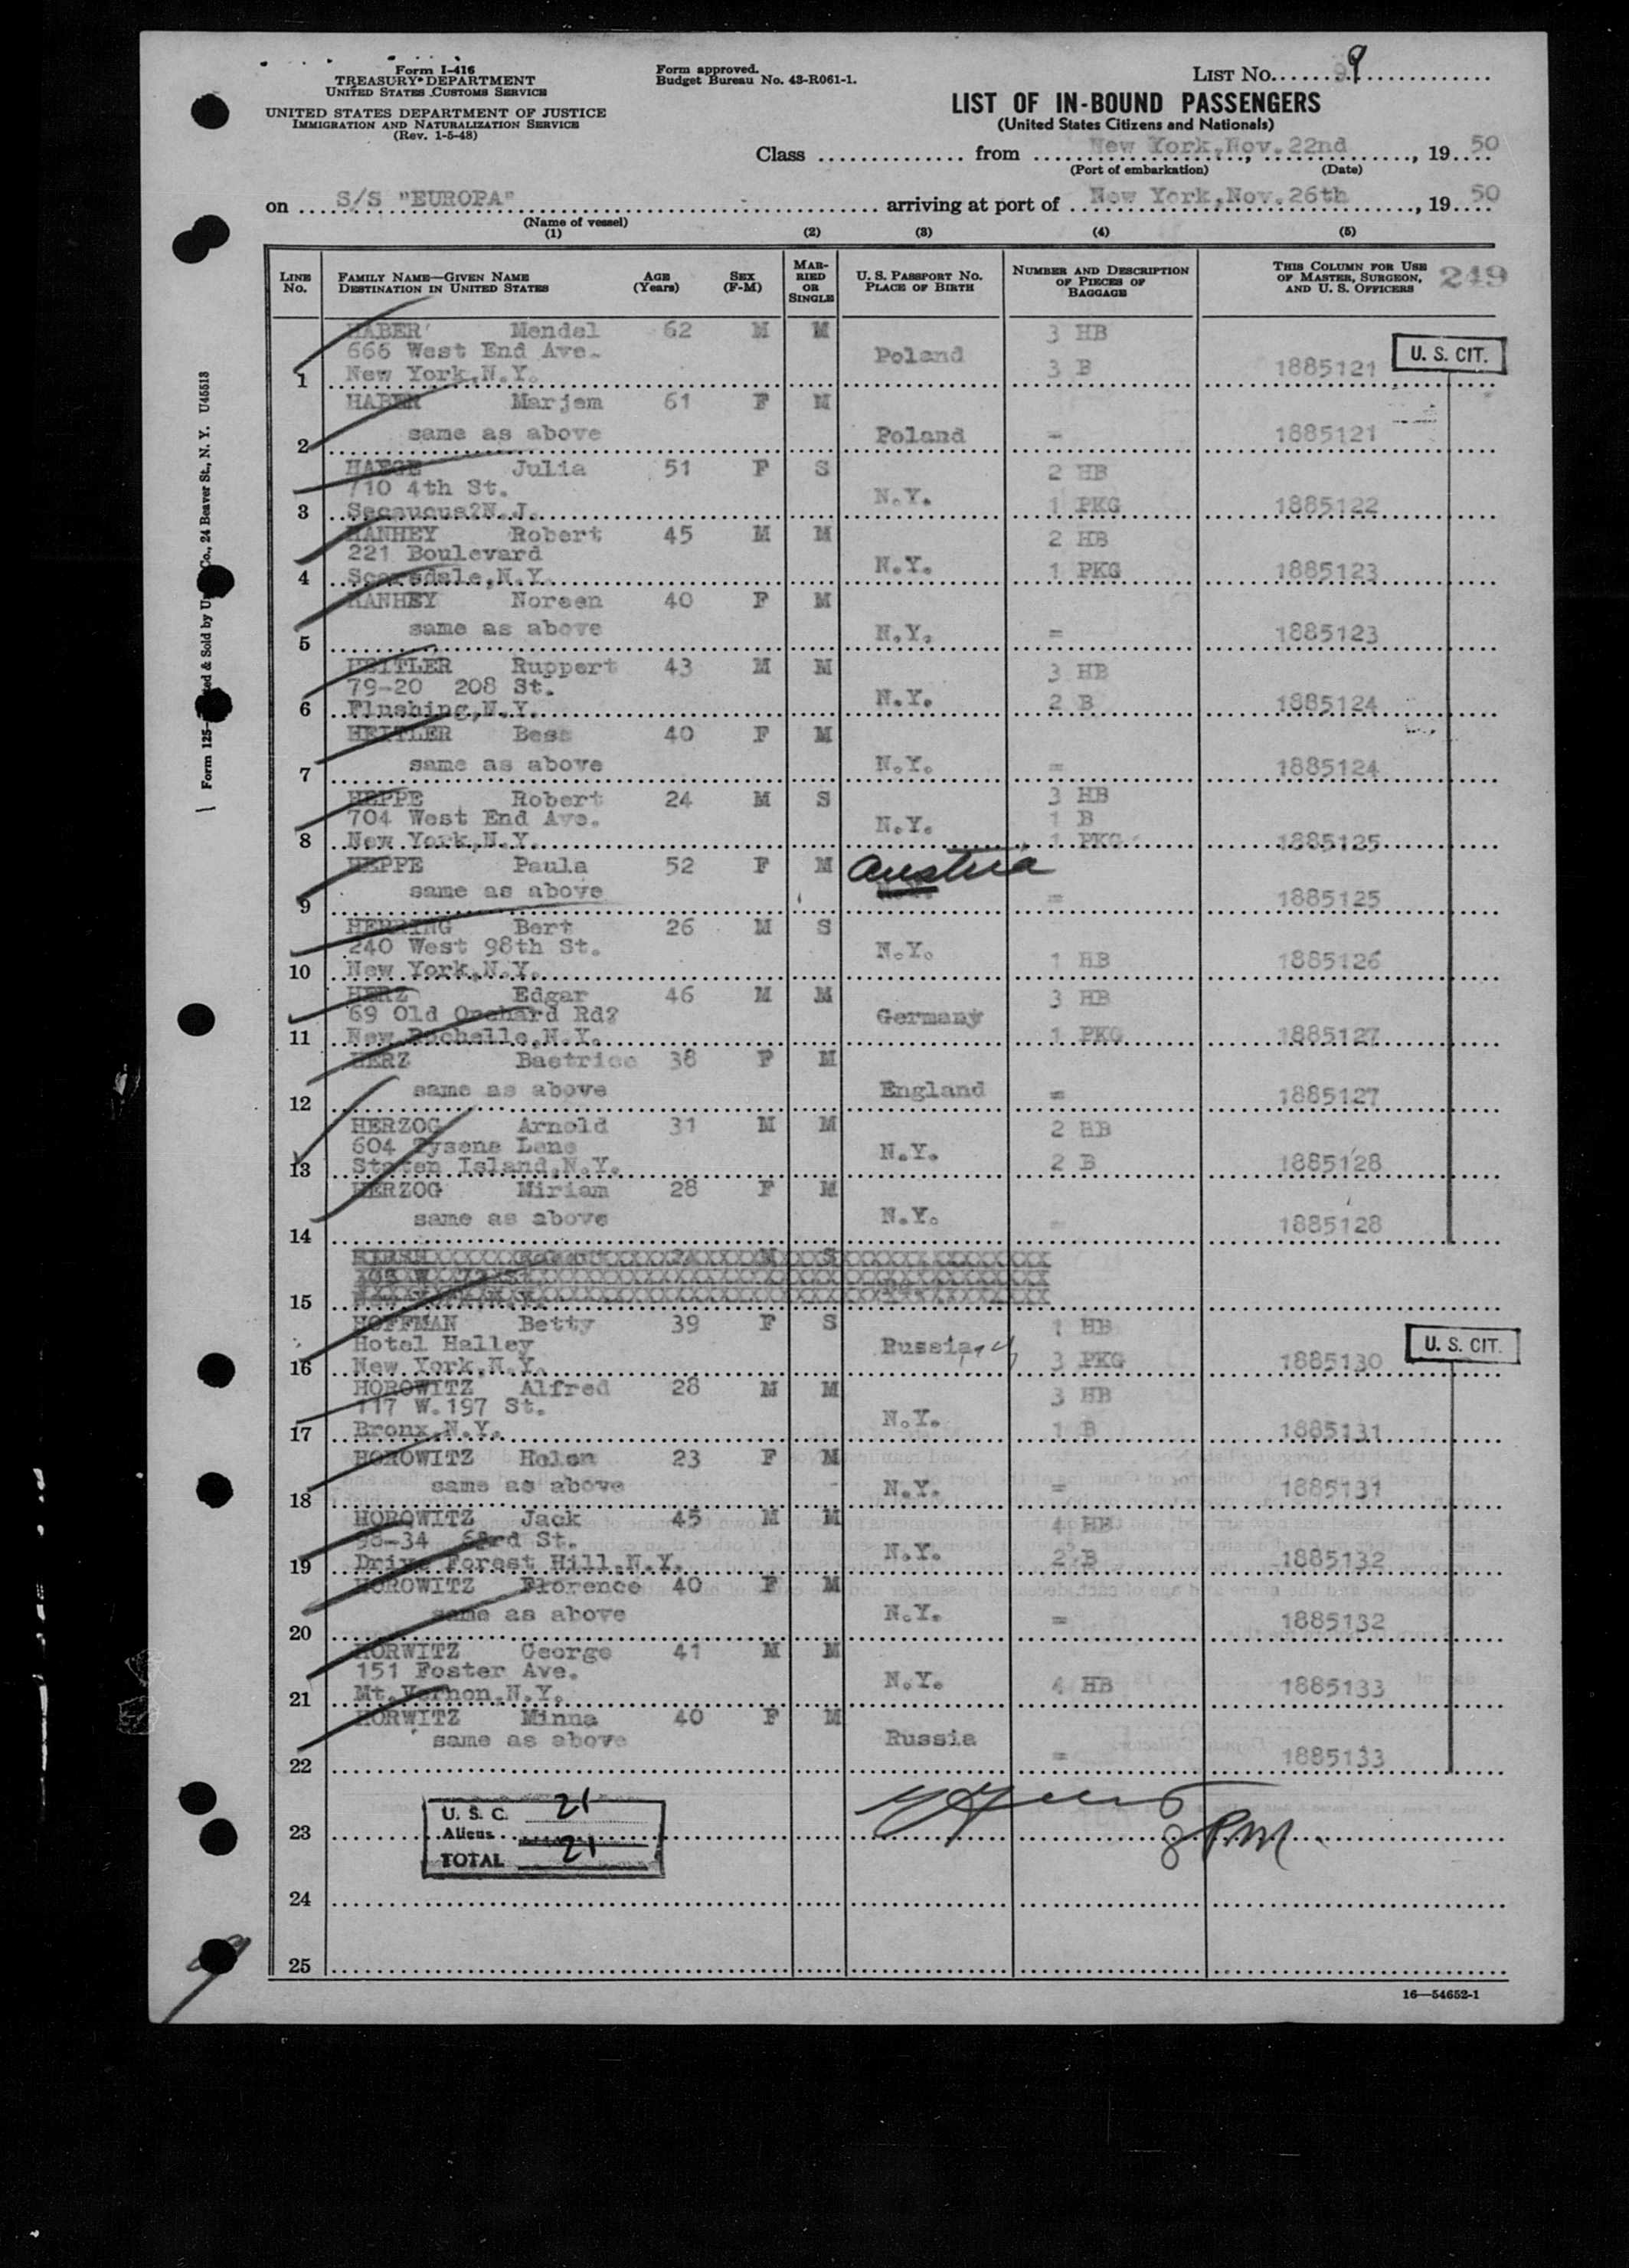 Form I-416
TREASURY DEPARTMENT
UNITED STATES CUSTOMS SERVICE
UNITED STATES DEPARTMENT OF JUSTICE
IMMIGRATION AND NATURALIZATION SERVICE
(Rev. 1-5-48)
Form approved.
Budget Bureau No. 43-R061-1.
LIST No. 9
LIST OF IN-BOUND PASSENGERS
(United States Citizens and Nationals)
Class from New York, Nov. 22nd, 1950
(Port of embarkation) (Date)
on S/S "EUROPA" arriving at port of New York, Nov. 26th, 1950
(Name of vessel)
(1) (2) (3) (4) (5)
LINE No. FAMILY NAME—GIVEN NAME DESTINATION IN UNITED STATES AGE (Years) SEX (F-M) MARRIED OR SINGLE U. S. PASSPORT No. PLACE OF BIRTH NUMBER AND DESCRIPTION OF PIECES OF BAGGAGE THIS COLUMN FOR USE OF MASTER, SURGEON, AND U. S. OFFICERS 249
HABER Mendel 62 M M 3 HB
666 West End Ave. Poland U. S. CIT.
1 New York, N.Y. 3 B 1885121
HABER Marjem 61 F M
2 same as above Poland = 1885121
HAEGE Julia 51 F S 2 HB
710 4th St. N.Y.
3 Secaucus?N.J. 1 PKG 1885122
HANHEY Robert 45 M M 2 HB
221 Boulevard N.Y.
4 Scarsdale, N.Y. 1 PKG 1885123
HANHEY Noreen 40 F M
5 same as above N.Y. = 1885123
HEITLER Ruppert 43 M M 3 HB
79-20 208 St. N.Y.
6 Flushing, N.Y. 2 B 1885124
HEITLER Bess 40 F M
7 same as above N.Y. = 1885124
HEPPE Robert 24 M S 3 HB
704 West End Ave. N.Y. 1 B
8 New York, N.Y. 1 PKG 1885125
HEPPE Paula 52 F M Austria
9 same as above = 1885125
HERRING Bert 26 M S
240 West 98th St. N.Y.
10 New York, N.Y. 1 HB 1885126
HERZ Edgar 46 M M 3 HB
69 Old Orchard Rd? Germany
11 New Rochelle, N.Y. 1 PKG 1885127
HERZ Baetrice 38 F M
12 same as above England = 1885127
HERZOG Arnold 31 M M 2 HB
604 Tysens Lane N.Y.
13 Staten Island, N.Y. 2 B 1885128
HERZOG Miriam 28 F M
14 same as above N.Y. = 1885128
15
HOFFMAN Betty 39 F S 1 HB
Hotel Halley Russia U. S. CIT.
16 New York, N.Y. 3 PKG 1885130
HOROWITZ Alfred 28 M M 3 HB
117 W. 197 St. N.Y.
17 Bronx, N.Y. 1 B 1885131
HOROWITZ Helen 23 F M
18 same as above N.Y. = 1885131
HOROWITZ Jack 45 M M 4 HB
98-34 63rd St. N.Y.
19 Drive Forest Hill, N.Y. 2 B 1885132
HOROWITZ Florence 40 F M
20 same as above N.Y. = 1885132
HORWITZ George 41 M M
151 Foster Ave. N.Y. 4 HB
21 Mt. Vernon, N.Y. 1885133
HORWITZ Minna 40 F M
same as above Russia
22 = 1885133
U. S. C. 21
23 Aliens 8 PM
TOTAL 21
24
25
16—54652-1